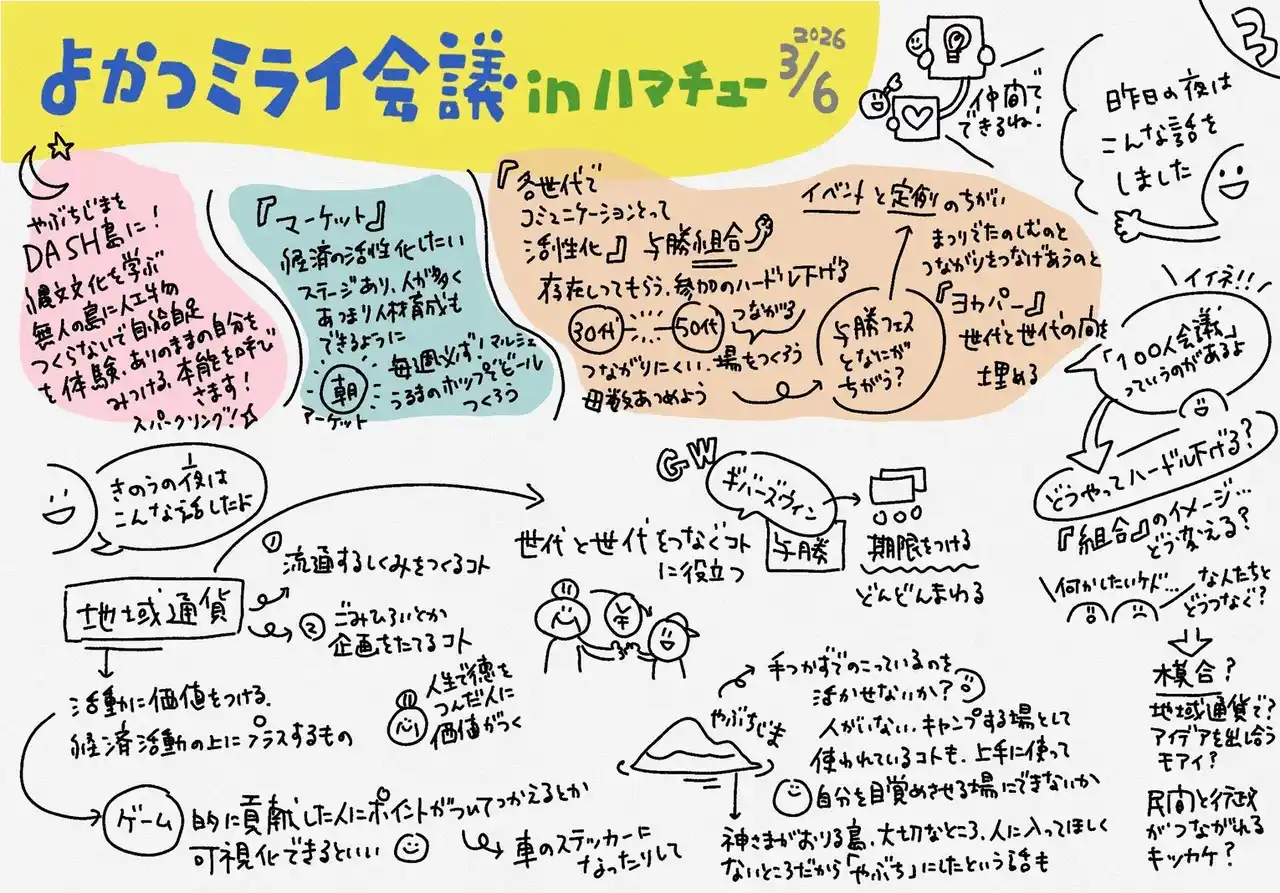 よかつミライ会議 in ハマチュー
2026
3/6
3
仲間で
できるね!
昨日の夜は
こんな話を
しました
やぶちじまを
DASH島に!
縄文文化を学ぶ
無人の島に人工物の
つくらないで自給自足
を体験、ありのままの自分を
みつける、本能を呼び
さます!
スパークリング!
『マーケット』
経済の活性化したい
ステージあり、人が多く
あつまり人材育成も
できるように
朝
アーケット
毎週必ず!マルシェ
うるまのホップでビール
つくろう
『各世代で
コミュニケーションとって
活性化』与勝組合
存在しってもらう、参加のハードル下げる
30代
50代
つながる
つながりにくい、場をつくろう
母数あつめよう
与勝フェス
となにが
ちがう?
イベントと定例のちがい
まつりでたのしむのと
つながりをつなげあうのと
『ヨカパー』
世代と世代の間を
埋める
イイネ!!
「100人会議」
っていうのがあるよ
どうやってハードル下げる?
『組合』のイメージ…
どう変える?
何かしたいケド…
な人たちと
どうつなぐ?
模合?
地域通貨で?
アイデアを出し合う
モアイ?
民間と行政
がつながれる
キッカケ?
きのうの夜は
こんな話したよ
地域通貨
① 流通するしくみをつくるコト
② ごみひろいとか
企画をたてるコト
活動に価値をつける。
経済活動の上にプラスするもの
人生で徳を
つんだ人に
価値がつく
ゲーム
的に貢献した人にポイントがついてつかえるとか
可視化できるといい
車のステッカーに
なったりして
世代と世代をつなぐコト
に役立つ
GW
ギバーズウィン
与勝
期限をつける
どんどんまわる
¥
やぶちじま
手つかずでのこっているのを
活かせないか?
人がいない、キャンプする場として
使われているコトも、上手に使って
自分を目覚めさせる場にできないか
神さまがおりる島、大切なところ、人に入ってほしく
ないところだから「やぶち」にしたという話も